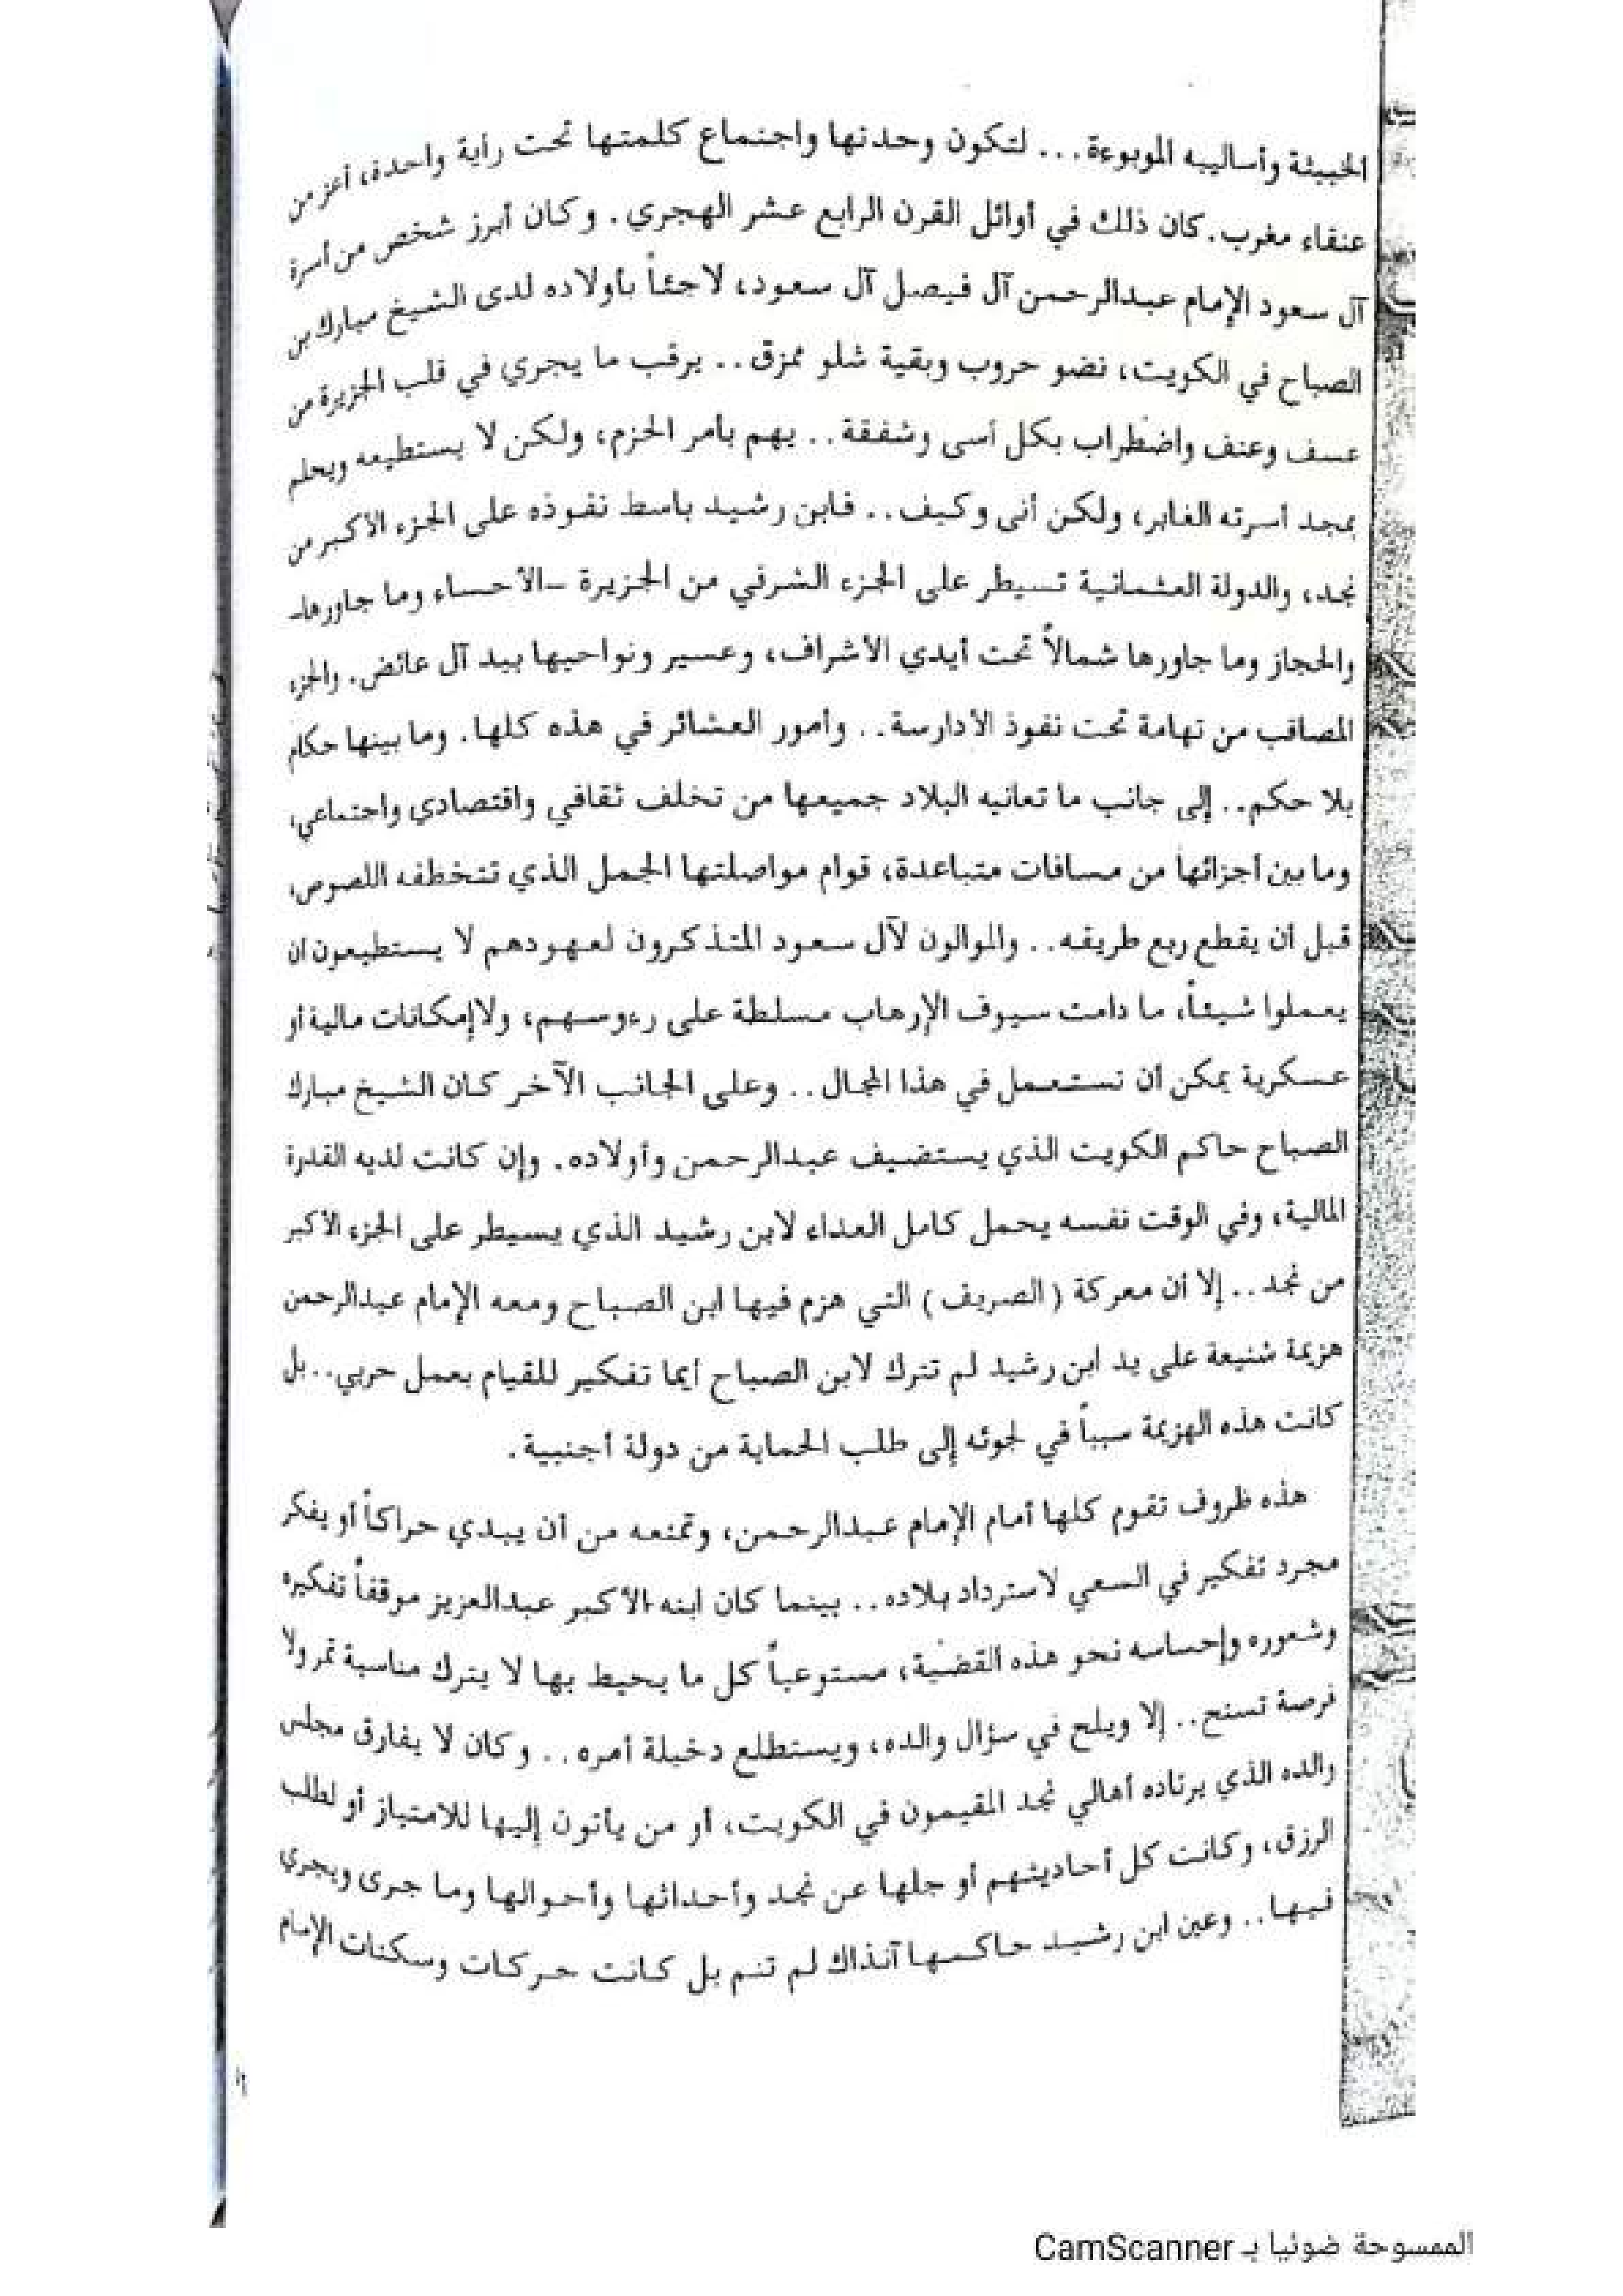 الخبيثة وأساليبه الموبوءة... لتكون وحدتها واجتماع كلمتها تحت راية واحدة، أعز من
عنقاء مغرب. كان ذلك في أوائل القرن الرابع عشر الهجري. وكان أبرز شخص من أسرة
آل سعود الإمام عبدالرحمن آل فيصل آل سعود، لاجئاً بأولاده لدى الشيخ مبارك بن
الصباح في الكويت، نضو حروب وبقية شلو ممزق.. يرقب ما يجري في قلب الجزيرة من
عسف وعنف واضطراب بكل أسى وشفقة.. يهم بأمر الحزم، ولكن لا يستطيعه ويحلم
بمجد أسرته الغابر، ولكن أنى وكيف.. فابن رشيد باسط نفوذه على الجزء الأكبر من
نجد، والدولة العثمانية تسيطر على الجزء الشرقي من الجزيرة -الأحساء وما جاورها-
والحجاز وما جاورها شمالاً تحت أيدي الأشراف، وعسير ونواحيها بيد آل عائض. والجزء
المصاقب من تهامة تحت نفوذ الأدارسة.. وأمور العشائر في هذه كلها. وما بينها حكام
بلا حكم.. إلى جانب ما تعانيه البلاد جميعها من تخلف ثقافي واقتصادي واجتماعي،
وما بين أجزائها من مسافات متباعدة، قوام مواصلتها الجمل الذي تتخطفه اللصوص،
قبل أن يقطع ربع طريقه.. والموالون لآل سعود المتذكرون لعهودهم لا يستطيعون ان
يعملوا شيئاً، ما دامت سيوف الإرهاب مسلطة على رءوسهم، ولا إمكانات مالية أو
عسكرية يمكن أن تستعمل في هذا المجال.. وعلى الجانب الآخر كان الشيخ مبارك
الصباح حاكم الكويت الذي يستضيف عبدالرحمن وأولاده. وإن كانت لديه القدرة
المالية، وفي الوقت نفسه يحمل كامل العداء لابن رشيد الذي يسيطر على الجزء الأكبر
من نجد.. إلا أن معركة (الصريف) التي هزم فيها ابن الصباح ومعه الإمام عبدالرحمن
هزيمة شنيعة على يد ابن رشيد لم تترك لابن الصباح أيما تفكير للقيام بعمل حربي.. بل
كانت هذه الهزيمة سبباً في لجوئه إلى طلب الحماية من دولة أجنبية.
هذه ظروف تقوم كلها أمام الإمام عبدالرحمن، وتمنعه من أن يبدي حراكاً أو يفكر
مجرد تفكير في السعي لاسترداد بلاده.. بينما كان ابنه الأكبر عبدالعزيز موقفاً تفكيره
وشعوره وإحساسه نحو هذه القضية، مستوعباً كل ما يحيط بها لا يترك مناسبة تمر ولا
فرصة تسنح.. إلا ويلح في سؤال والده، ويستطلع دخيلة أمره.. وكان لا يفارق مجلس
والده الذي يرتاده أهالي نجد المقيمون في الكويت، أو من يأتون إليها للامتياز أو لطلب
الرزق، وكانت كل أحاديثهم أو جلها عن نجد وأحداثها وأحوالها وما جرى ويجري
فيها.. وعين ابن رشيد حاكمها آنذاك لم تنم بل كانت حركات وسكنات الإمام
الممسوحة ضوئيا بـ CamScanner